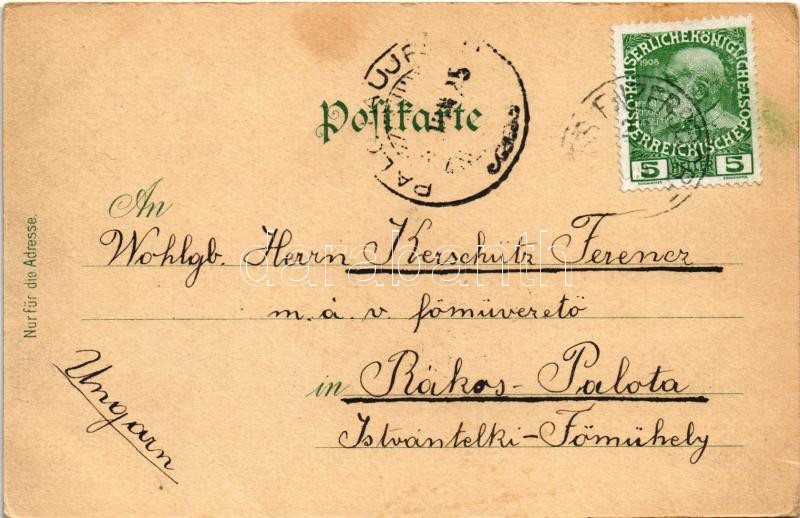 Postkarte
KAISERLICHE KÖNIGLICHE
1908
ÖSTERREICHISCHE
5 HELLER 5
An
Wohlgb. Herrn Kerschütz Ferencz
m. á. v. fömüvezető
in Rákos-Palota
Istvántelki-Főműhely
Ungarn
Nur für die Adresse.
darabanth